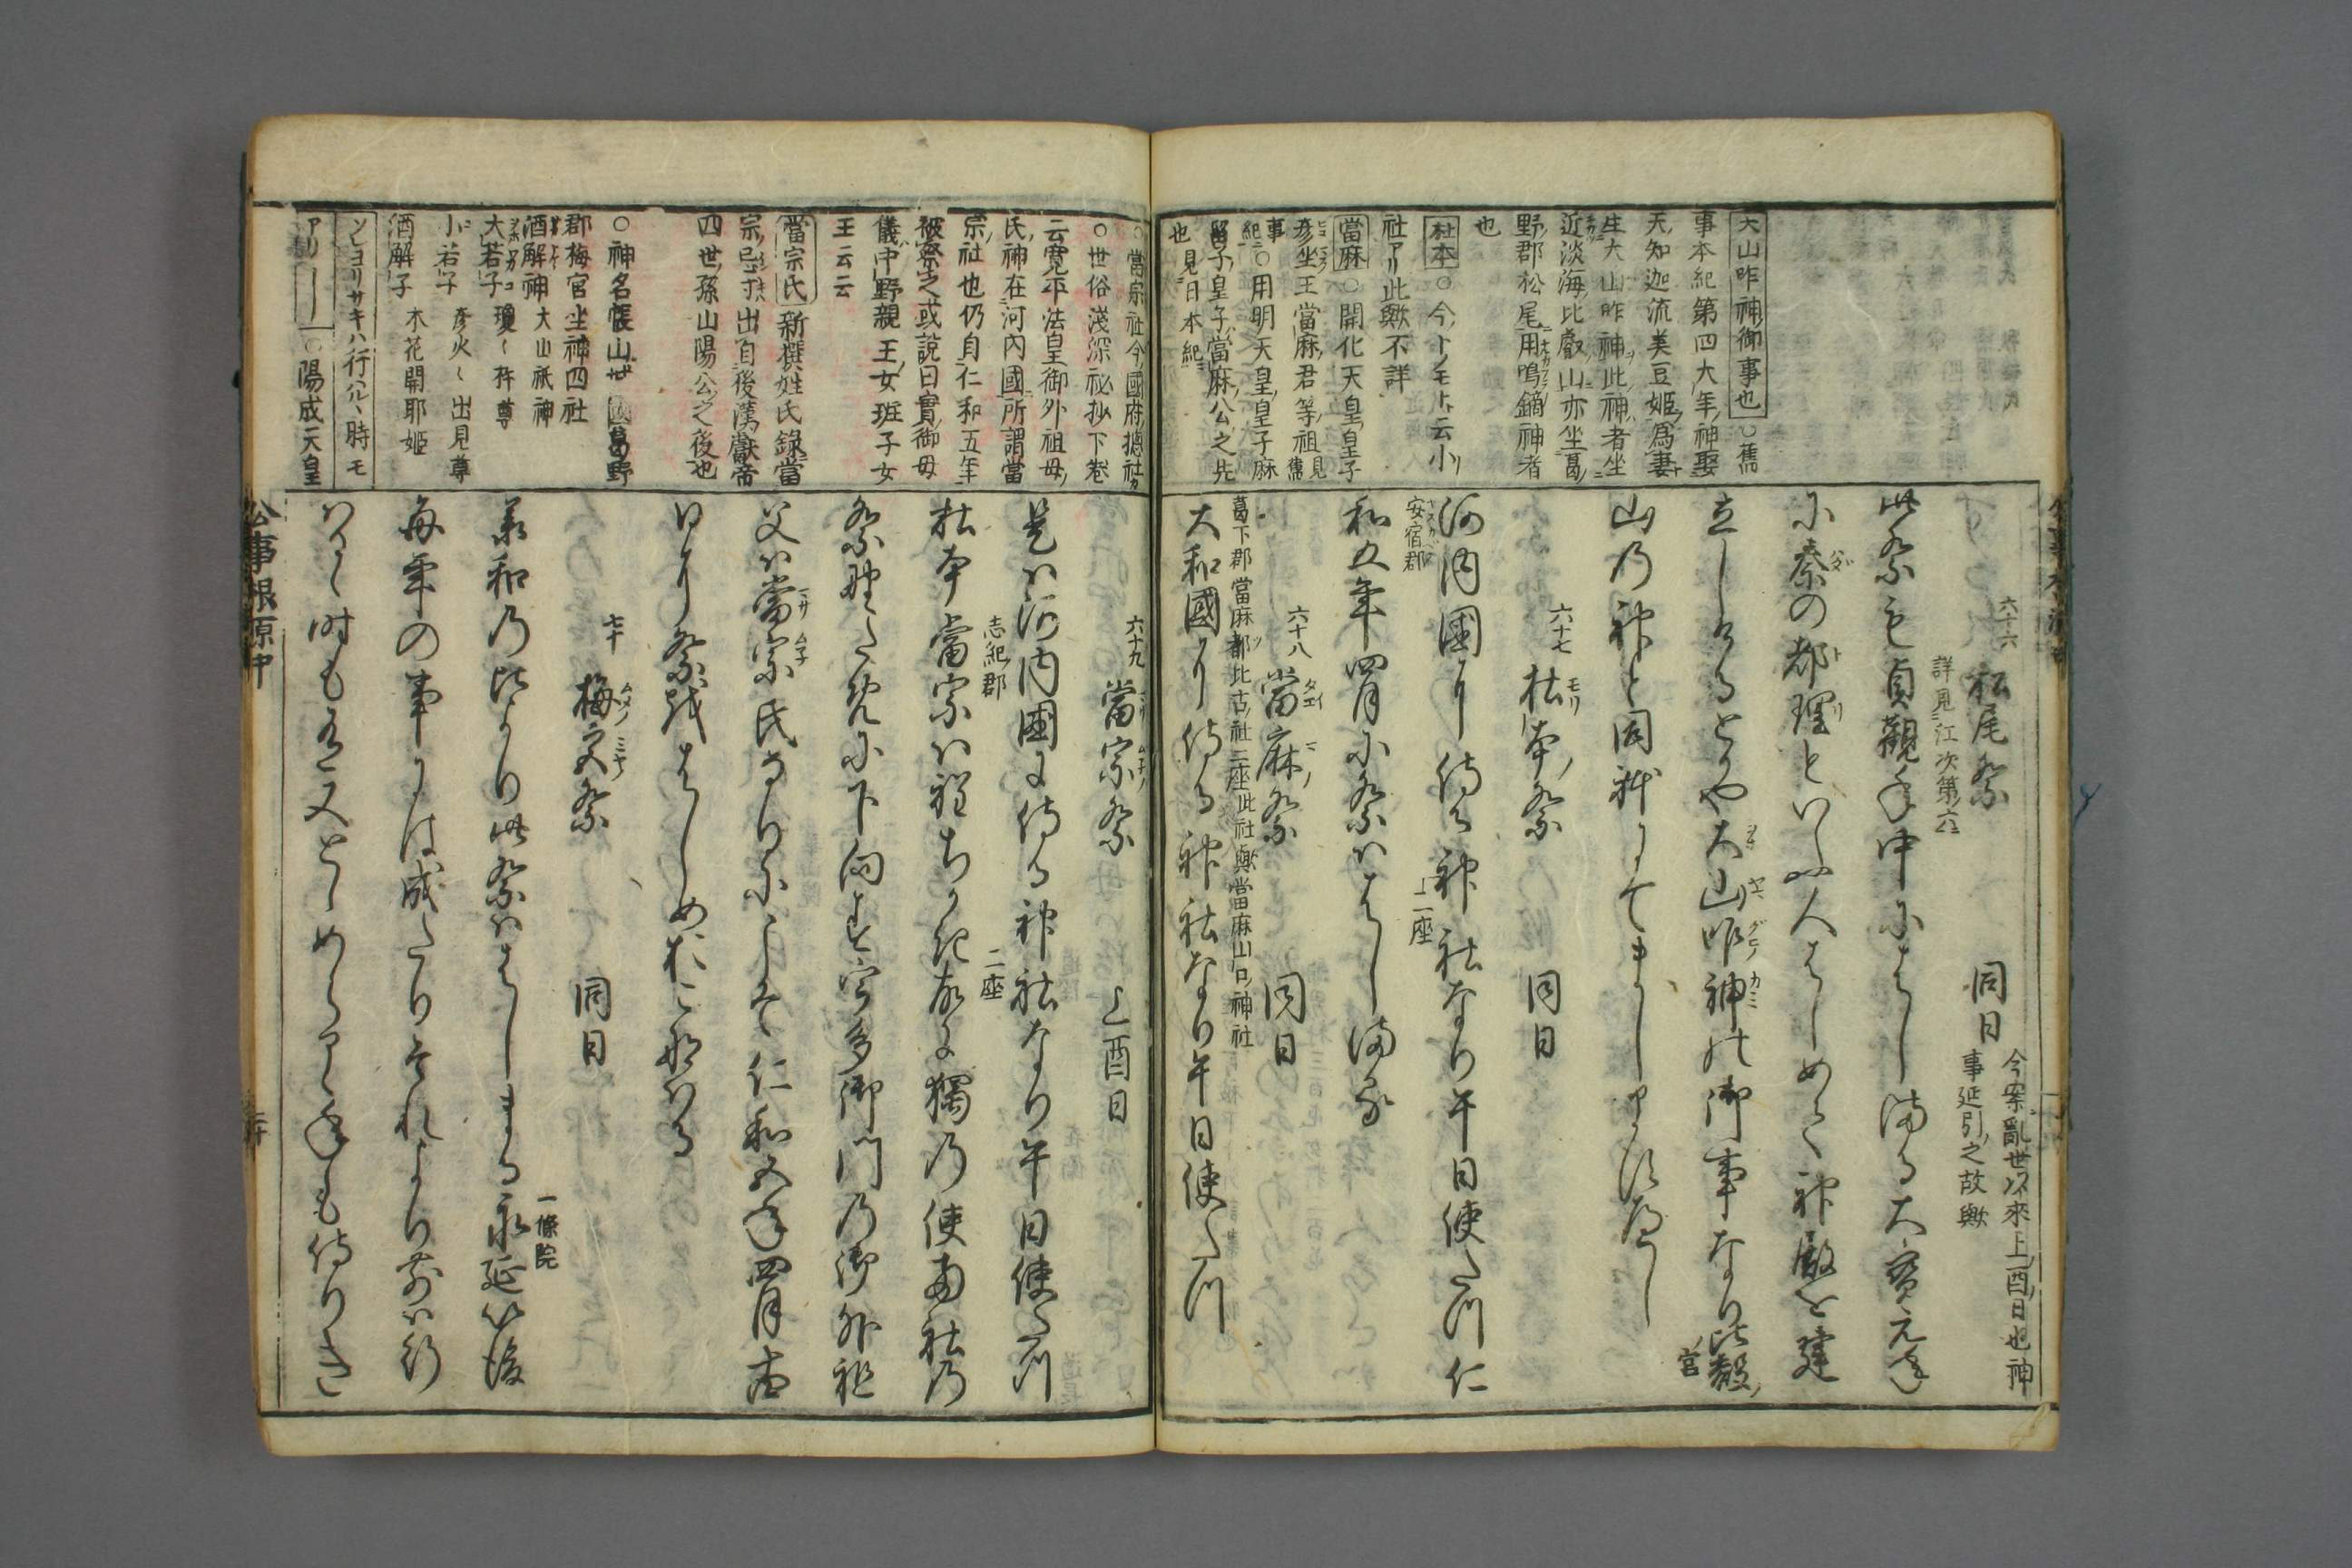 大山咋神御事也○舊
事本紀第四大年神娶
天知迦流美豆姫爲妻
生大山咋神此神者坐
近淡海比叡山亦坐葛
野郡松尾用鳴鏑神者
也
杜本○今ノモト云小
社アリ此歟不詳
當麻○開化天皇皇子
彦坐王當麻君等祖見舊
事紀○用明天皇皇子麻
呂子皇子當麻公之先
也見日本紀
六十六 松尾祭 同日 今案亂世以來上酉日也神
事延引之故歟
詳見江次第六
此祭も貞觀年中にはしまる大寳元年
に秦の都理といふ人はしめて神殿を建
立しけるとかや大山咋神の御事なり比叡
山の神と同躰にてましますなるへし
六十七 杜本祭 同日
河内國に侍る神社なり午日使たつ仁
安宿郡 二座
和五年四月に祭ははしまる
六十八 當麻祭 同日
葛下郡當麻都比古社二座此社歟當麻山口神社
大和國に侍る神社なり午日使たつ
○當宗社今國府惣社
○世俗淺深祕抄下卷
云寛平法皇御外祖母
氏神在河内國所謂當
宗社也仍自仁和五年
被祭之或説曰實御母
儀中野親王女班子女
王云云
當宗氏新撰姓氏錄當
宗忌寸出自後漢獻帝
四世孫山陽公之後也
○神名帳山城國葛野
郡梅宮坐神四社
酒解神 大山祇神
大若子 瓊々杵尊
小若子 彦火々出見尊
酒解子 木花開耶姫
ソレヨリサキハ行ハルヽ時モ
アリ――○陽成天皇
六十九 當宗祭 上酉日
是は河内國に侍る神社なり午日使たつ
志紀郡 二座
杜本當宗は程ちかき故に獨の使兩社の
祭陣にたちに下向す宇多御門の御外祖
父は當宗氏なりけにこそ仁和五年四月に
けり祭をはしめおこなはる
七十 梅宮祭 同日
承和の比より此祭ははしまる永延以後
一條院
毎年の事には成たりそれより前は行
はるゝ時もあり又とゝめらるゝ年も侍りき
公事根源中